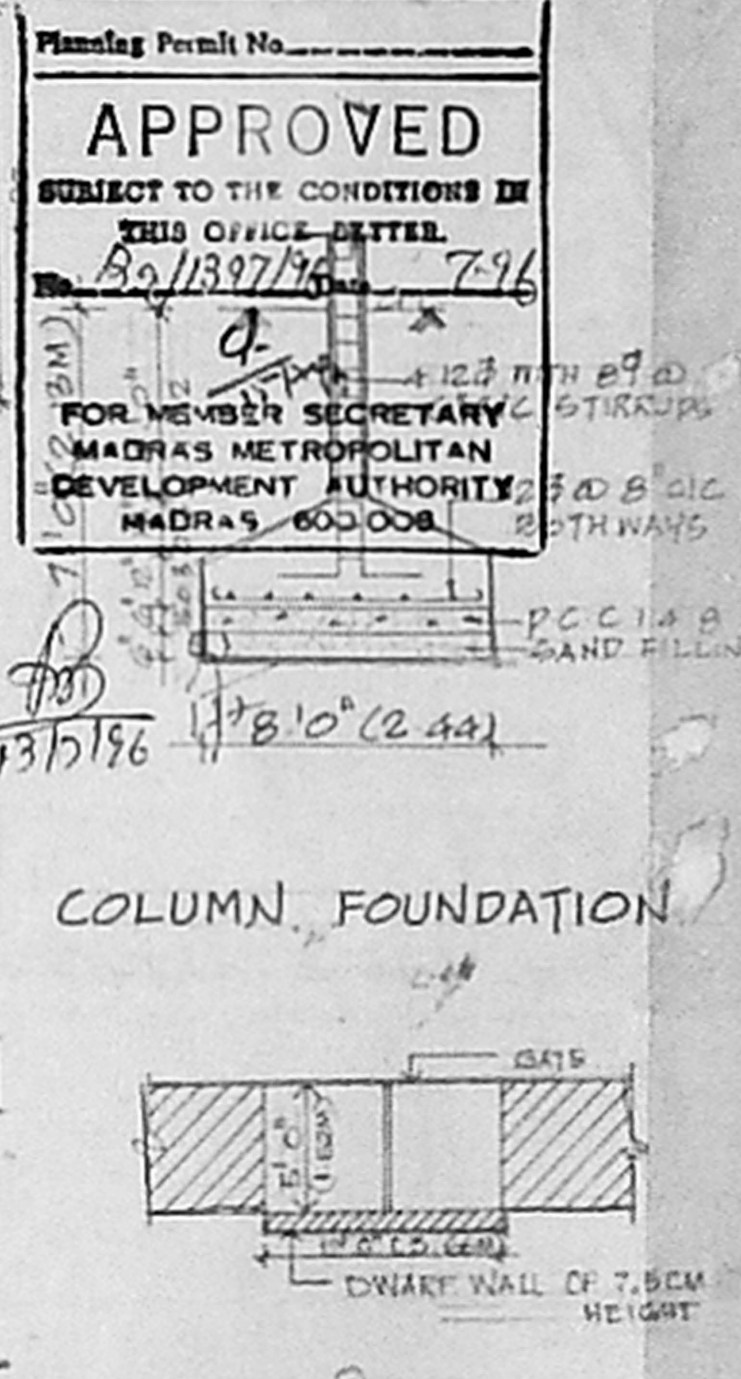 Planning Permit No.
APPROVED
SUBJECT TO THE CONDITIONS IN
THIS OFFICE LETTER.
No. B2/1397/96 Date 7-96
FOR MEMBER SECRETARY
MADRAS METROPOLITAN
DEVELOPMENT AUTHORITY
MADRAS 600 008
7'0" (2.13M)
STIRRUPS
@ 8" C/C
BOTH WAYS
P C C 1 4 8
SAND FILLIN
8'0" (2.44)
COLUMN FOUNDATION
GATE
5'0"
(1.52M)
DWARF WALL OF 7.5CM
HEIGHT